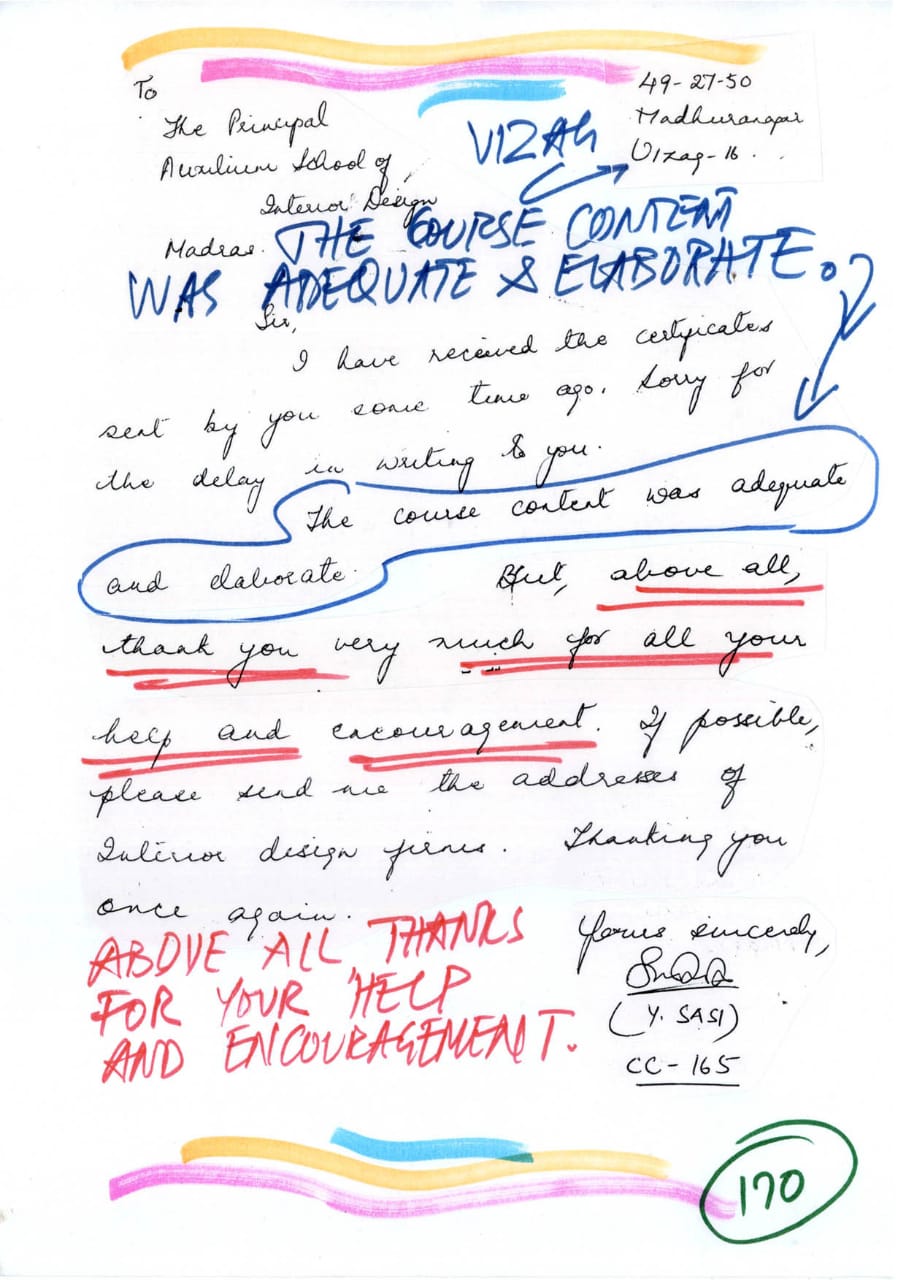 To
The Principal
Auxilium School of
Interior Design,
Madras.
49-27-50
Madhuranagar
Vizag-16.
VIZAG
THE COURSE CONTENT
WAS ADEQUATE & ELABORATE.
Sir,
I have received the certificates
sent by you some time ago. Sorry for
the delay in writing to you.
The course content was adequate
and elaborate. But, above all,
thank you very much for all your
help and encouragement. If possible,
please send me the addresses of
Interior design firms. Thanking you
once again.
Yours sincerely,
(Y. SASI)
CC-165
ABOVE ALL THANKS
FOR YOUR HELP
AND ENCOURAGEMENT.
170